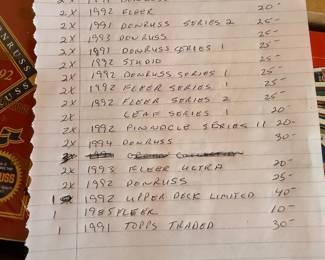 2X 1992 FLEER 20-
2X 1991 DONRUSS SERIES 2 25-
2X 1993 DONRUSS 25-
2X 1991 DONRUSS SERIES 1 25-
2X 1992 STUDIO 25-
2X 1992 DONRUSS SERIES 1 25-
2X 1992 FLEER SERIES 1 25-
2X 1992 FLEER SERIES 2 25-
2X LEAF SERIES 1 20-
2X 1992 PINNACLE SERIES II 20-
2X 1994 DONRUSS 30-
2X 1993 FLEER ULTRA 20-
2X 1992 DONRUSS 25-
1 1992 UPPER DECK LIMITED 40-
1 1985 FLEER 10-
1 1991 TOPPS TRADED 30-
DONRUSS
92